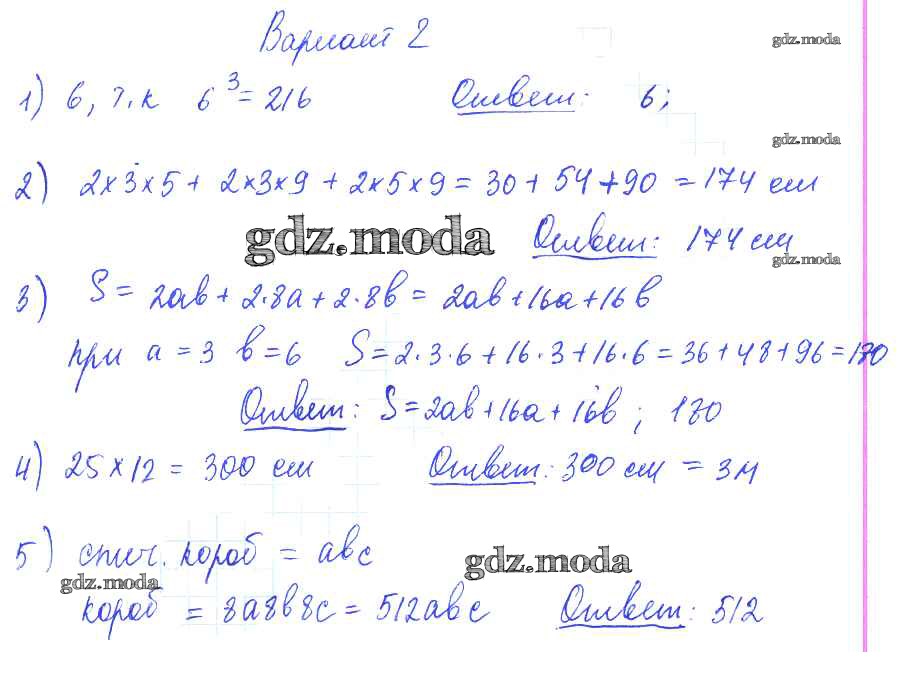 Вариант 2
gdz.moda
1) 6, т.к 6³ = 216 Ответ: 6;
gdz.moda
2) 2×3×5 + 2×3×9 + 2×5×9 = 30 + 54 + 90 = 174 см
gdz.moda Ответ: 174 см
gdz.moda
3) S = 2ab + 2·8a + 2·8b = 2ab + 16a + 16b
при a = 3 b = 6 S = 2·3·6 + 16·3 + 16·6 = 36 + 48 + 96 = 180
Ответ: S = 2ab + 16a + 16b ; 180
4) 25 × 12 = 300 см Ответ: 300 см = 3м
5) спич. короб = abc
gdz.moda
gdz.moda
короб = 8a8b8c = 512abc Ответ: 512